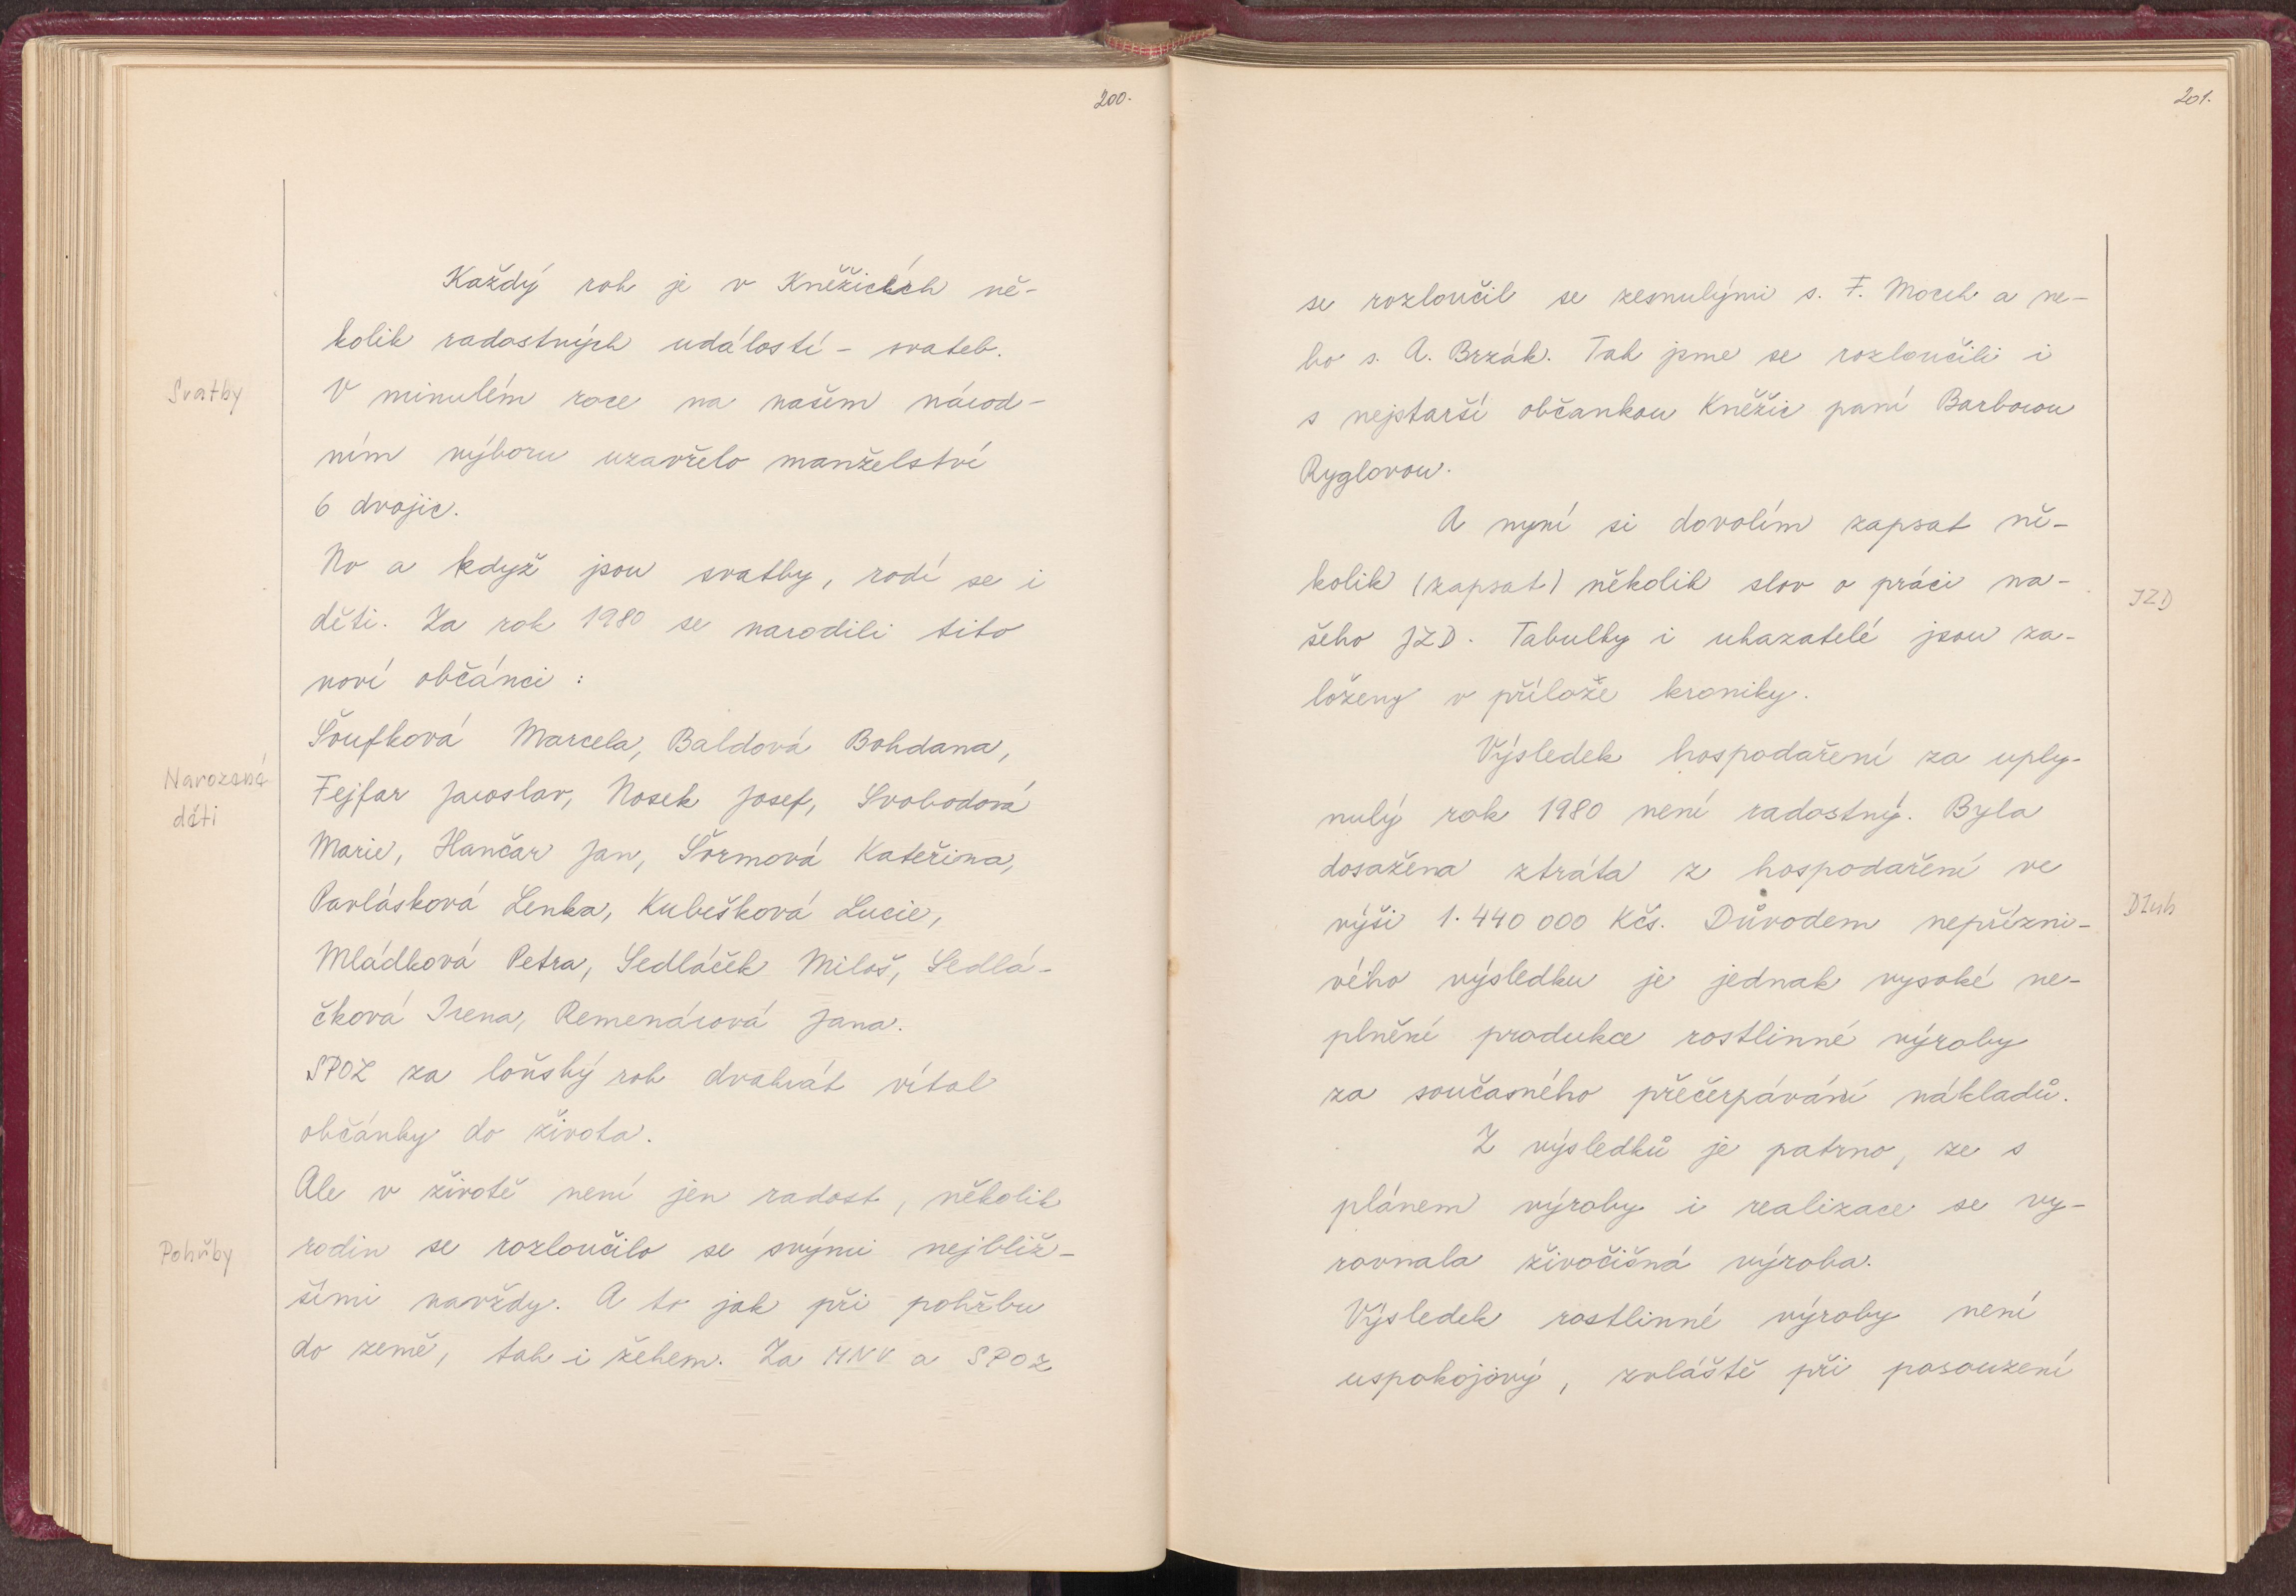 200.
Každý rok je v Kněžicích ně-
kolik radostných událostí - svateb.
Svatby
V minulém roce na našem národ-
ním výboru uzavřelo manželství
6 dvojic.
No a když jsou svatby, rodí se i
děti. Za rok 1980 se narodili tito
noví občánci :
Šoufková Marcela, Baldová Bohdana,
Narozené
děti
Fejfar Jaroslav, Nosek Josef, Svobodová
Marie, Hančar Jan, Šormová Kateřina,
Pavlásková Lenka, Kubešková Lucie,
Mládková Petra, Sedláček Miloš, Sedlá-
čková Irena, Remenárová Jana.
SPOZ za loňský rok dvakrát vítal
občánky do života.
Ale v životě není jen radost, několik
Pohřby
rodin se rozloučilo se svými nejbliž-
šími navždy. A to jak při pohřbu
do země, tak i žehem. Za MNV a SPOZ
201.
se rozloučil se zesnulými s. F. Moch a ne-
bo s. A. Brzák. Tak jsme se rozloučili i
s nejstarší občankou Kněžic paní Barborou
Ryglovou.
A nyní si dovolím zapsat ně-
kolik (zapsat) několik slov o práci na-
JZD
šeho JZD. Tabulky i ukazatelé jsou za-
loženy v příloze kroniky.
Výsledek hospodaření za uply-
nulý rok 1980 není radostný. Byla
dosažena ztráta z hospodaření ve
výši 1.440 000 Kčs. Důvodem nepřízni-
Dluh
vého výsledku je jednak vysoké ne-
plnění produkce rostlinné výroby
za současného přečerpávání nákladů.
Z výsledků je patrno, ze s
plánem výroby i realizace se vy-
rovnala živočišná výroba.
Výsledek rostlinné výroby není
uspokojový, zvláště při posouzení